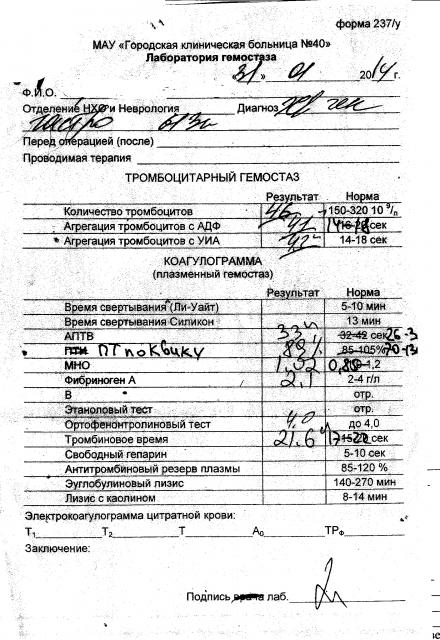 форма 237/у
МАУ «Городская клиническая больница №40»
Лаборатория гемостаза
31 » 01 2014 г.
Ф.И.О.
Отделение НХО и Неврология Диагноз хр ген
гастро
Перед операцией (после)
Проводимая терапия
ТРОМБОЦИТАРНЫЙ ГЕМОСТАЗ
Результат Норма
Количество тромбоцитов 46 150-320 10 9/л
Агрегация тромбоцитов с АДФ 41 сек
Агрегация тромбоцитов с УИА 42" 14-18 сек
КОАГУЛОГРАММА
(плазменный гемостаз)
Результат Норма
Время свертывания (Ли-Уайт) 5-10 мин
Время свертывания Силикон 13 мин
АПТВ 33" 32-42 сек 26-3
ПТИ ПТ по Квику 89% 85-105% 70-13
МНО 1,02 0,85-1,2
Фибриноген А 2,1 2-4 г/л
В отр.
Этаноловый тест отр.
Ортофенонтролиновый тест 4,0 до 4,0
Тромбиновое время 21.6" сек
Свободный гепарин 5-10 сек
Антитромбиновый резерв плазмы 85-120 %
Эуглобулиновый лизис 140-270 мин
Лизис с каолином 8-14 мин
Электрокоагулограмма цитратной крови:
Т1 Т2 Т А0 ТРФ
Заключение:
Подпись врача лаб.